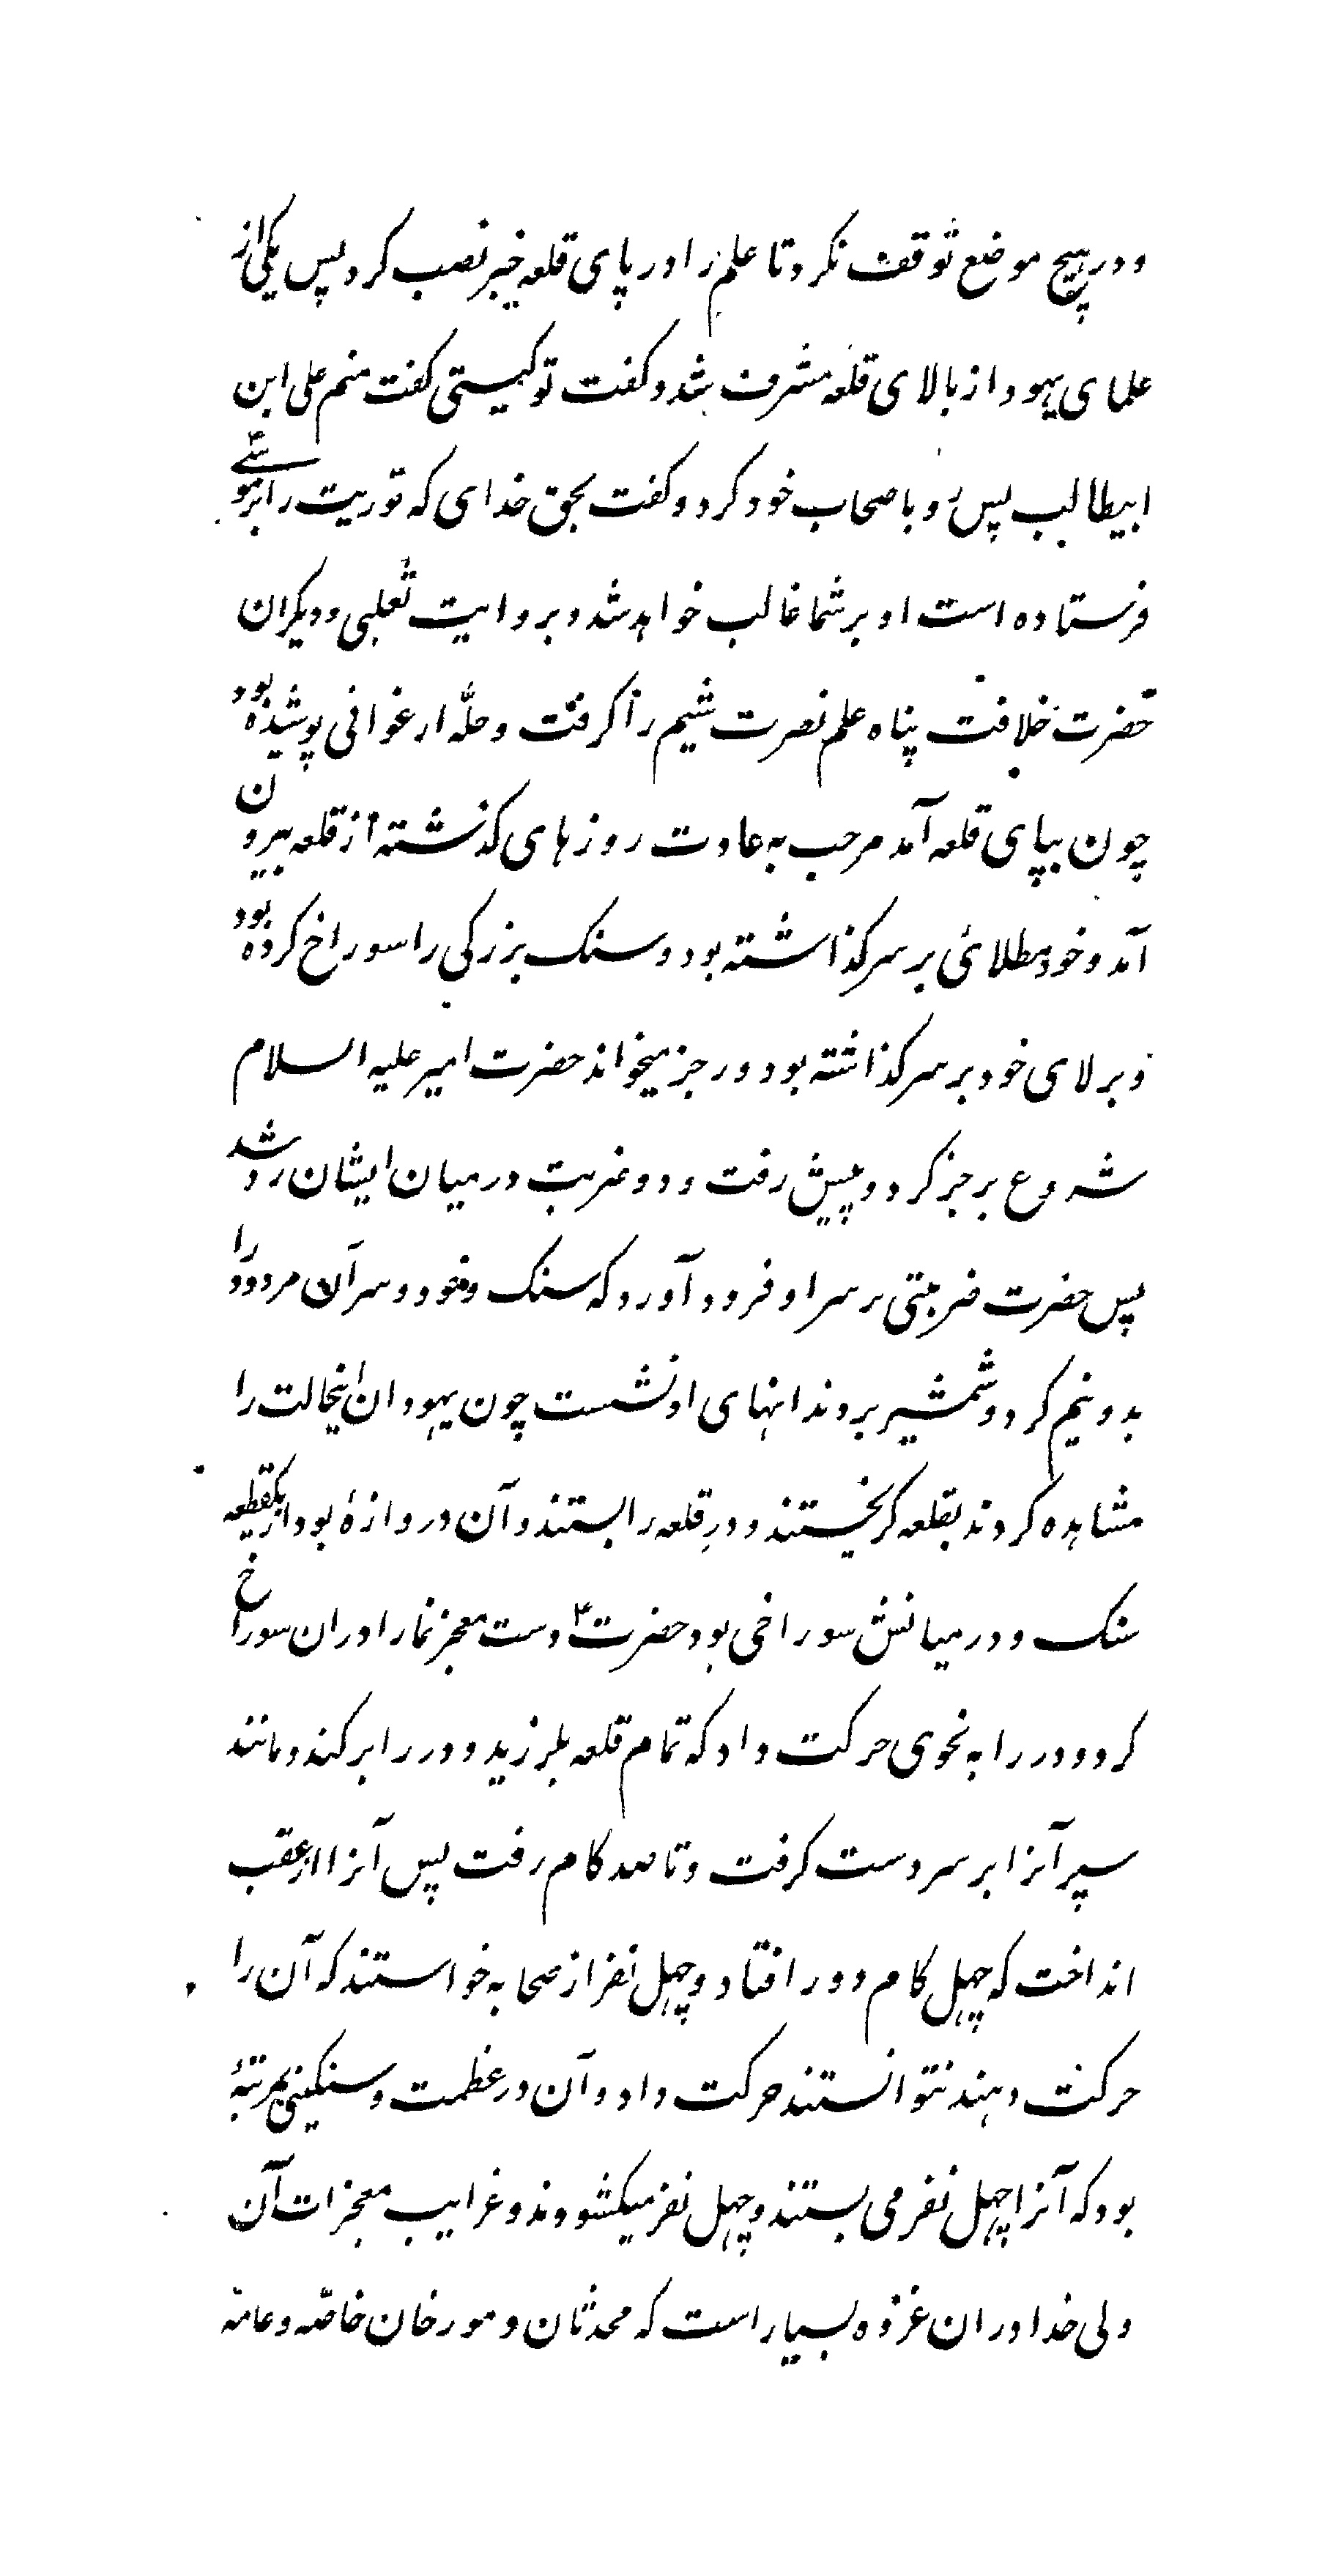 و در هیچ موضع توقف نکرد تا علم را در پای قلعه خیبر نصب کرد پس یکی از
علمای یهود از بالای قلعه مشرف شد و کفت تو کیستی کفت منم علی ابن
ابیطالب پس رو باصحاب خود کرد و کفت بحق خدای که توریت را بر موسی
فرستاده است او بر شما غالب خواهد شد و بروایت ثعلبی و دیکران
حضرت خلافت پناه علم نصرت شیم را کرفت و حله ارغوانی پوشیده بود
چون بپای قلعه آمد مرحب به عادت روزهای کذشته از قلعه بیرون
آمد و خود مطلائی بر سر کذاشته بود و سنک بزرکی را سوراخ کرده بود
و بر لای خود بر سر کذاشته بود و رجز میخواند حضرت امیر علیه السلام
شروع برجز کرد و پیش رفت و دو ضربت در میان ایشان رد شد
پس حضرت ضربتی بر سر او فرود آورد که سنک و خود و سر آن مردود را
بدو نیم کرد و شمشیر بر دندانهای او نشست چون یهودان اینحالت را
مشاهده کردند بقلعه کریختند و در قلعه را بستند و آن دروازۀ بود از یکقطعه
سنک و در میانش سوراخی بود حضرت ع دست معجز نما را در ان سوراخ
کرد و در را به نحوی حرکت داد که تمام قلعه بلرزید و در را بر کند و مانند
سپر آنرا بر سر دست کرفت و تا صد کام رفت پس آنرا از عقب
انداخت که چهل کام دور افتاد و چهل نفر از صحابه خواستند که آن را
حرکت دهند نتوانستند حرکت داد و آن در عظمت و سنکینی بمرتبۀ
بود که آنرا چهل نفر می بستند و چهل نفر میکشودند و غرایب معجزات آن
ولی خدا در ان غزوه بسیار است که محدثان و مورخان خاصّه و عامّه